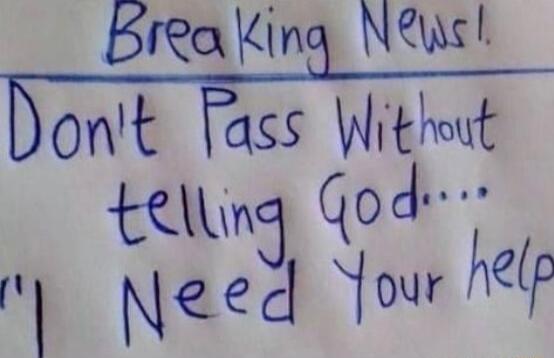 Breaking News!
Don't Pass Without
telling God....
"I Need Your help